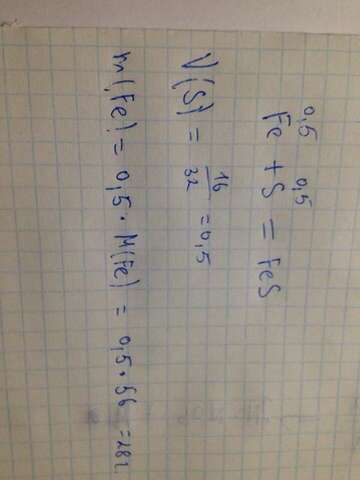 0,5 0,5
Fe + S = FeS
V(S) = 16/32 = 0,5
m(Fe) = 0,5 · M(Fe) = 0,5 · 56 = 28г